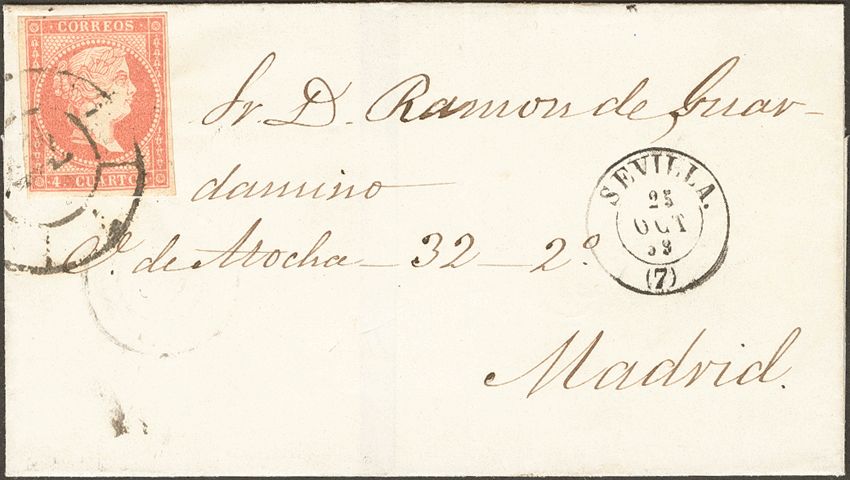 CORREOS
4 CUARTOS
Sr. D. Ramon de Guar-
damino
Ce. de Atocha - 32 - 2º
Madrid.
SEVILLA.
25
OCT
59
(7)